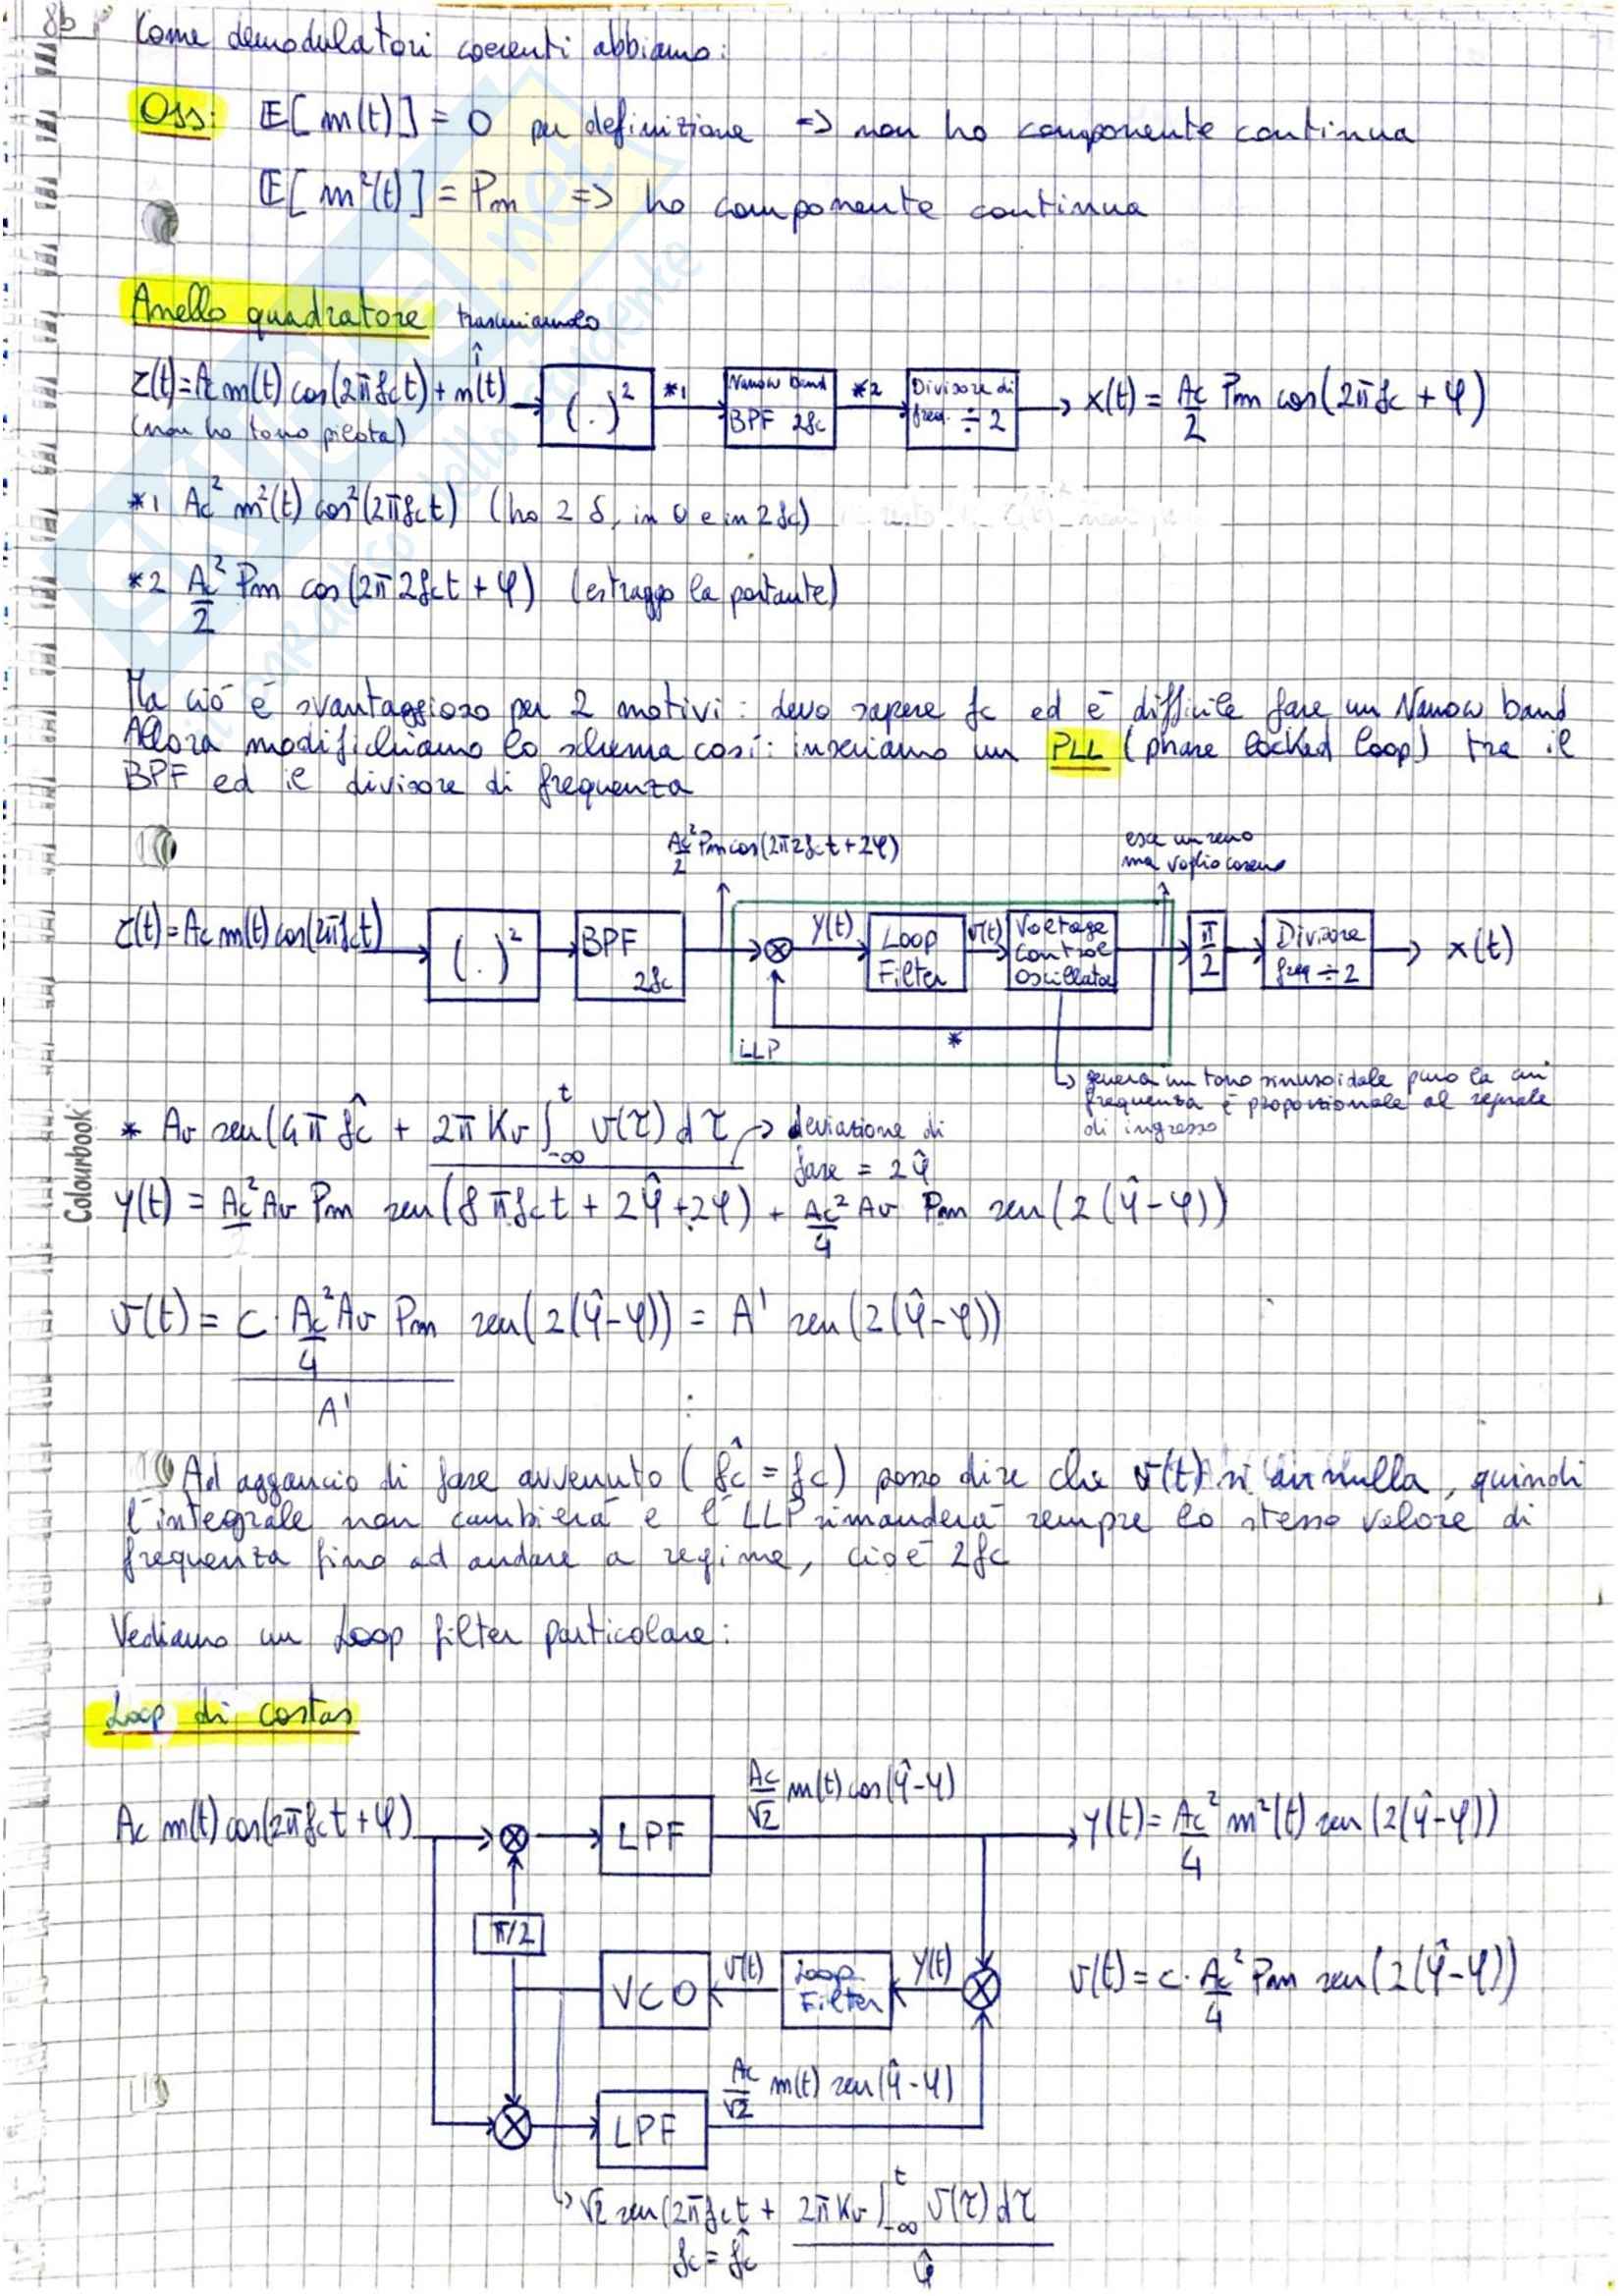 8b
Come demodulatori coerenti abbiamo:
Oss: E[m(t)] = 0 per definizione => non ho componente continua
E[m²(t)] = Pm => ho componente continua
Anello quadratore trascuriamolo
r(t) = Ac m(t) cos(2πfct) + n(t) (.)² *1 Narrow band BPF 2fc *2 Divisore di freq. ÷ 2 x(t) = Ac/2 Pm cos(2πfc + φ)
(non ho tono pilota)
*1 Ac² m²(t) cos²(2πfct) (ho 2 δ, in 0 e in 2fc)
*2 Ac²/2 Pm cos(2π2fct + φ) (estraggo la portante)
Ma ciò è svantaggioso per 2 motivi: devo sapere fc ed è difficile fare un Narrow band
Allora modifichiamo lo schema così: inseriamo un PLL (phase locked loop) tra il
BPF ed il divisore di frequenza
Ac²/2 Pm cos(2π2fct + 2φ)
esce un seno
ma voglio coseno
r(t) = Ac m(t) cos(2πfct) (.)² BPF 2fc y(t) Loop Filter v(t) Voltage control oscillator π/2 Divisore freq ÷ 2 x(t)
LLP *
genera un tono sinusoidale puro la cui
frequenza è proporzionale al segnale
di ingresso
* Av sen(4π f̂c + 2π Kv ∫_{-∞}^{t} v(τ) dτ → deviazione di
fase = 2φ̂
y(t) = Ac²/2 Av Pm sen(8πfct + 2φ̂ + 2φ) + Ac²/4 Av Pm sen(2(φ̂-φ))
v(t) = c · Ac²/4 Av Pm sen(2(φ̂-φ)) = A' sen(2(φ̂-φ))
A'
Ad aggancio di fase avvenuto (f̂c = fc) posso dire che v(t) si annulla, quindi
l'integrale non cambierà e l'LLP rimanderà sempre lo stesso valore di
frequenza fino ad andare a regime, cioè 2fc
Vediamo un Loop filter particolare:
Loop di costas
Ac/√2 m(t) cos(φ̂-φ)
Ac m(t) cos(2πfct + φ) LPF y(t) = Ac²/4 m²(t) sen(2(φ̂-φ))
π/2
VCO v(t) Loop Filter y(t) v(t) = c · Ac²/4 Pm sen(2(φ̂-φ))
Ac/√2 m(t) sen(φ̂-φ)
LPF
√2 sen(2πfct + 2πKv ∫_{-∞}^{t} v(τ) dτ
fc = f̂c φ̂
Colourbook